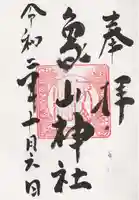 奉拝
象山神社
令和二年十一月六日